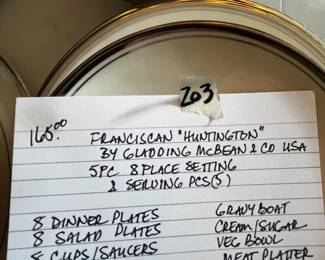 203
165.00
FRANCISCAN "HUNTINGTON"
BY GLADDING MCBEAN & CO USA
5PC 8 PLACE SETTING
& SERVING PCS(5)
8 DINNER PLATES
8 SALAD PLATES
8 CUPS/SAUCERS
GRAVY BOAT
CREAM/SUGAR
VEG BOWL
MEAT PLATTER